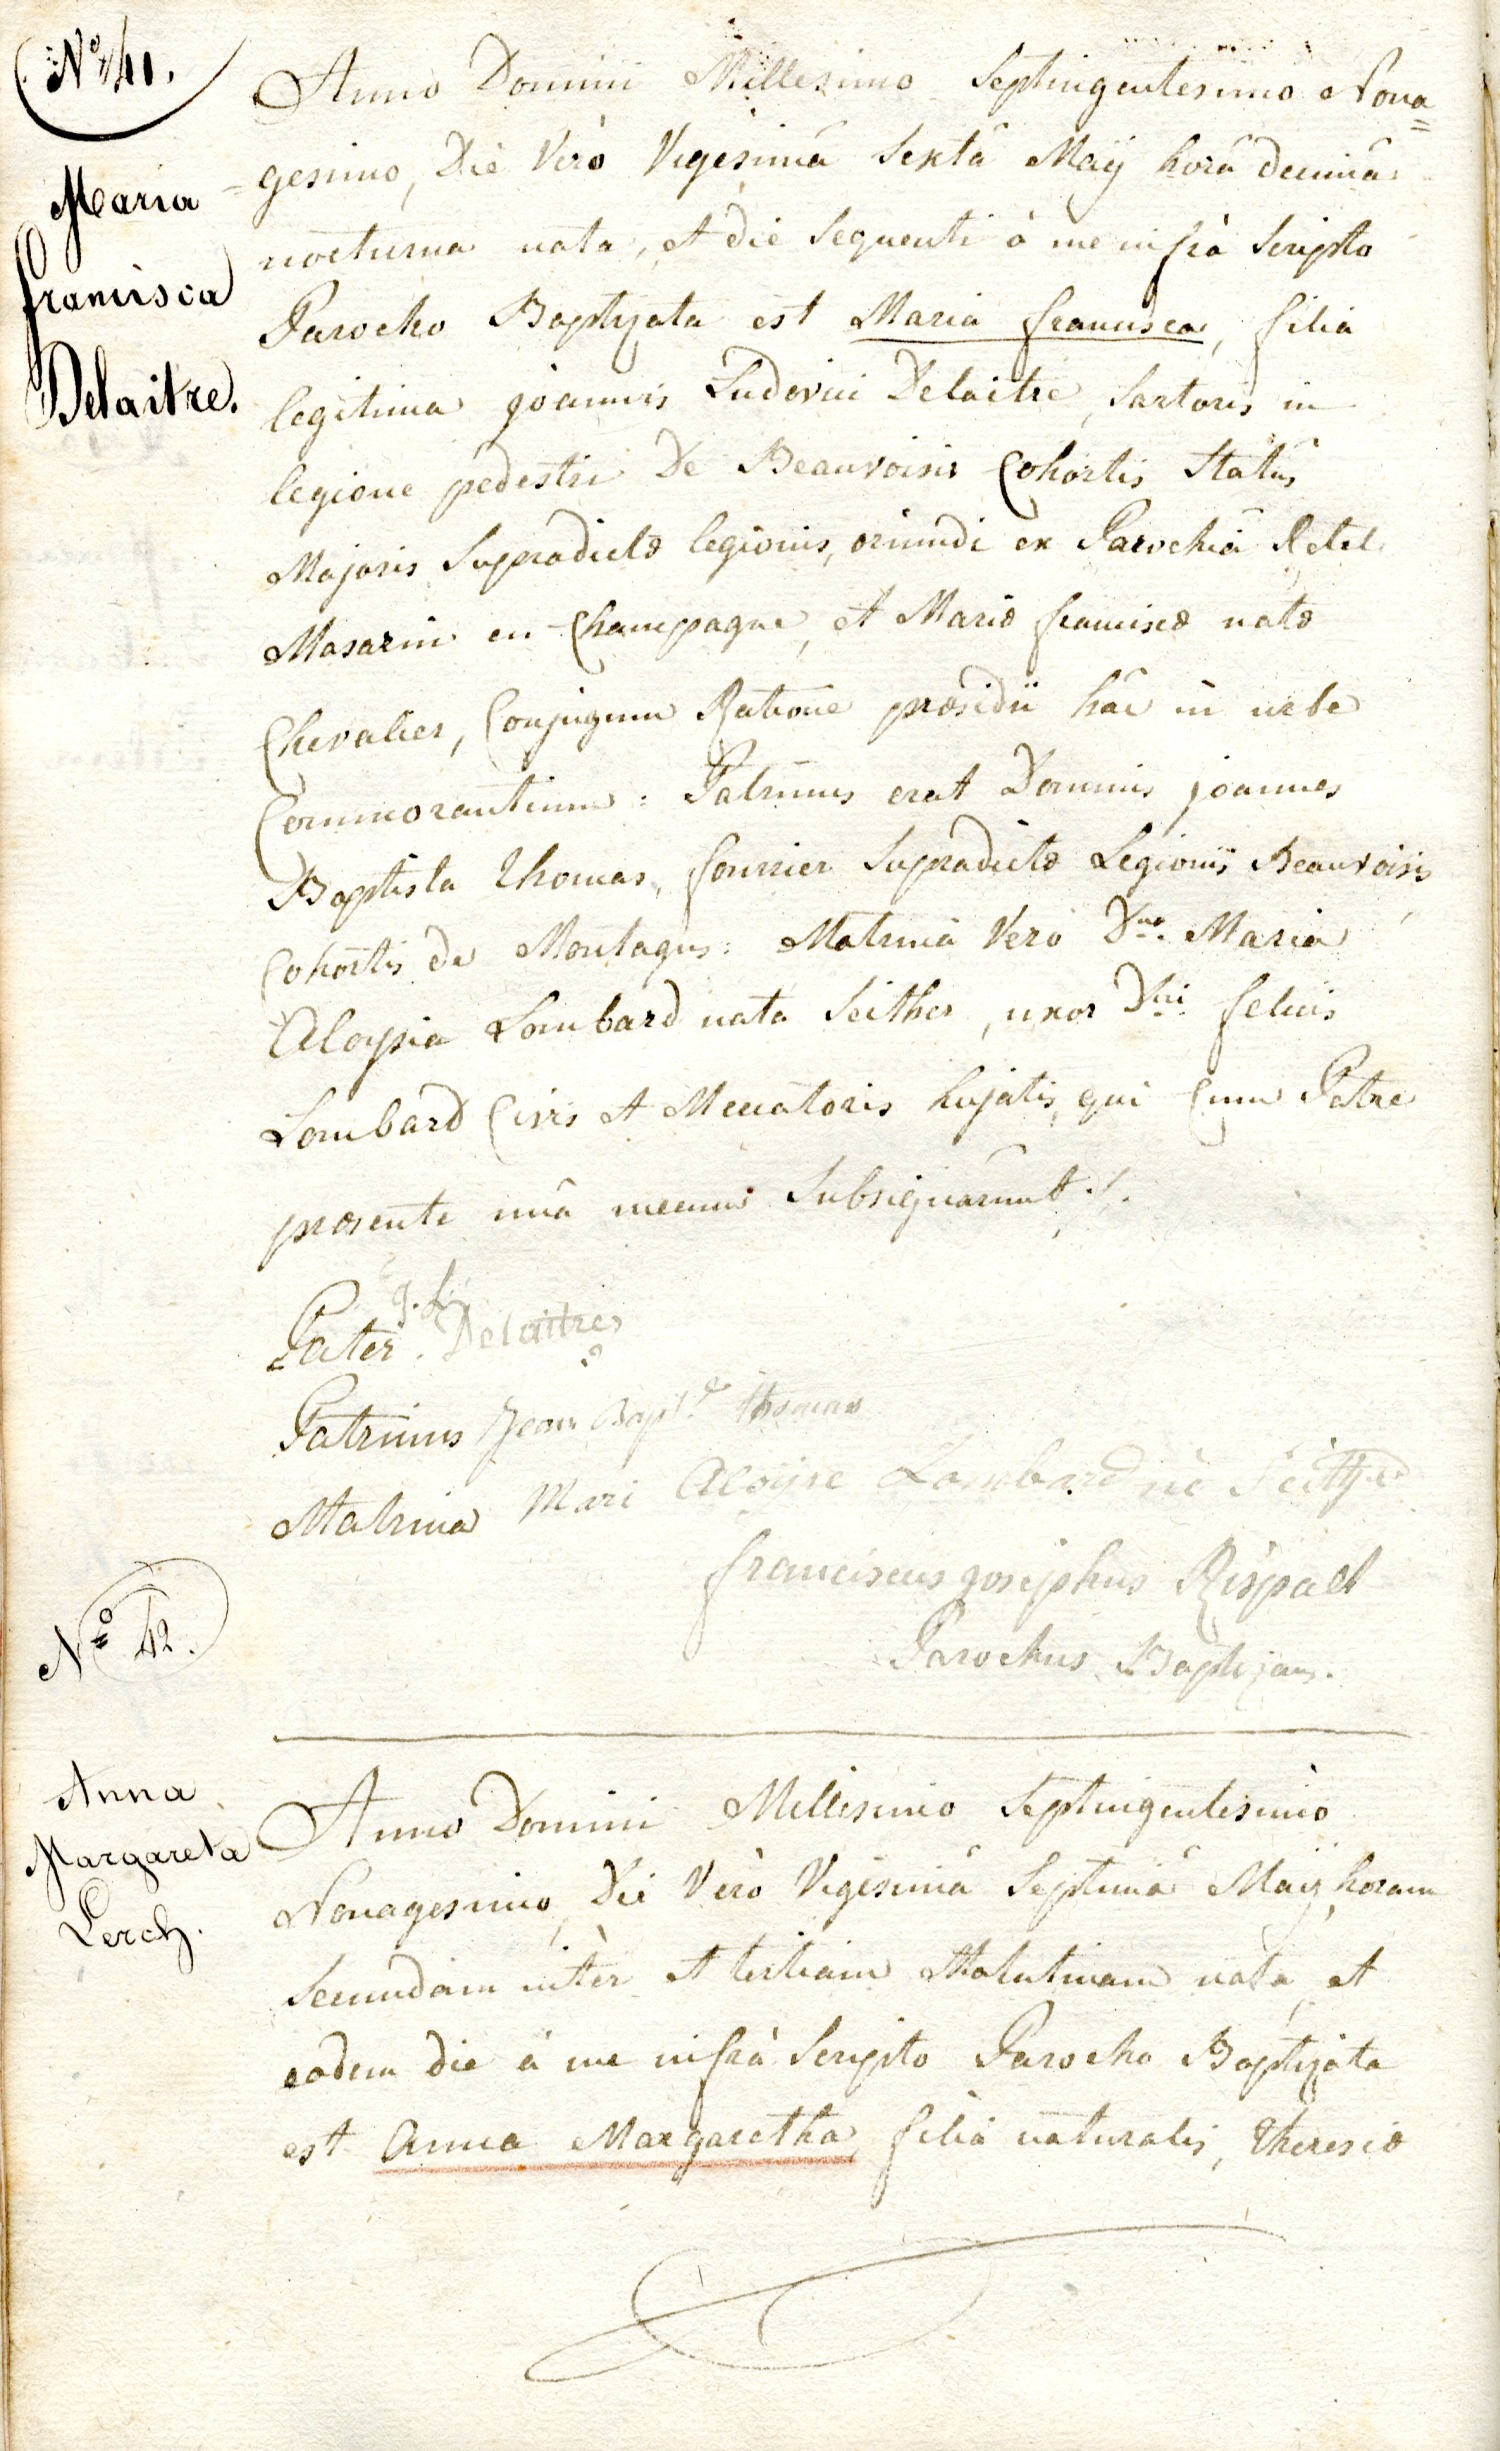 N.º 41.
Maria
francisca
Delaitre.
Anno Domini Millesimo Septingentesimo Nona=
=gesimo, Die Verò Vigesimâ Sextâ Maÿ horâ decimâ
nocturnâ nata, et die sequenti à me infrà scripto
Parocho Baptizata est Maria francisca, filia
legitima joannis Ludovici Delaitre, Sartoris in
legione pedestri De Beauvoisis Cohortis Statûs
Majoris Supradictæ legionis, oriundi ex Parochiâ Retel
Masarin en Champagne, et Mariæ franciscæ natæ
Chevalier, Conjugum Ratione præsidii hâc in urbe
Commorantium: Patrinus erat Dominus joannes
Baptista Thomas, fourrier Supradictæ Legionis Beauvoisis
Cohortis de Montagus: Matrina Verò Dna. Maria
Aloysia Lombard nata Seither, uxor Dni. felicis
Lombard Civis et Mercatoris hujatis, qui Cum Patre
præsente unâ mecum Subsignarunt ./.
Pater. J. L. Delaitre
Patrinus Jean Bapt.e thomas
Matrina Mari Aloÿse Lombard né Seither
franciscus josephus Rispalt
Parochus Baptizans.
N.º 42.
Anna
Margareta
Lerch.
Anno Domini Millesimo Septingentesimo
Nonagesimo, Die Verò Vigesimâ Septimâ Maij, horam
Secundam inter et tertiam Matutinam nata, et
eâdem die à me infrà Scripto Parocho Baptizata
est Anna Margaretha, filia naturalis, Theresiæ